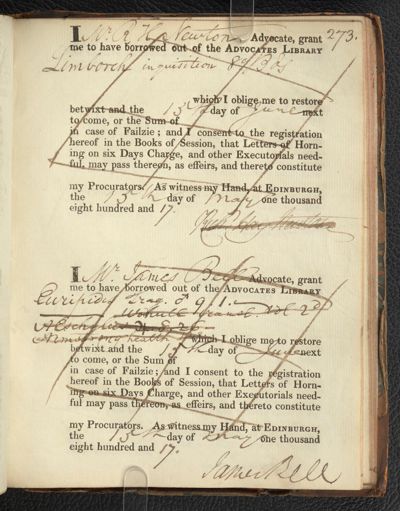 I Mr R. Hay Newton Advocate, grant 273.
me to have borrowed out of the ADVOCATES LIBRARY
Limborch inquisition
which I oblige me to restore
betwixt and the 15th day of June next
to come, or the Sum of
in case of Failzie; and I consent to the registration
hereof in the Books of Session, that Letters of Horn-
ing on six Days Charge, and other Executorials need-
ful, may pass thereon, as effeirs, and thereto constitute
my Procurators. As witness my Hand, at EDINBURGH,
the 15th day of May one thousand
eight hundred and 17.
I Mr James Bell Advocate, grant
me to have borrowed out of the ADVOCATES LIBRARY
Euripides Trag.
Aeschylus
Armstrong health which I oblige me to restore
betwixt and the 15th day of June next
to come, or the Sum of
in case of Failzie; and I consent to the registration
hereof in the Books of Session, that Letters of Horn-
ing on six Days Charge, and other Executorials need-
ful may pass thereon, as effeirs, and thereto constitute
my Procurators. As witness my Hand, at EDINBURGH,
the 15th day of May one thousand
eight hundred and 17.
James Bell